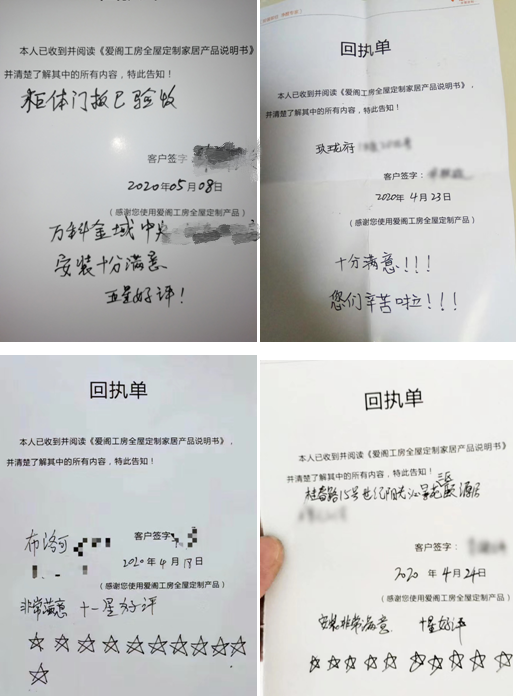 本人已收到并阅读《爱阁工房全屋定制家居产品说明书》
并清楚了解其中的所有内容，特此告知！
柜体门板已验收
客户签字
2020年05月08日
（感谢您使用爱阁工房全屋定制产品）
万科金域中央
安装十分满意
五星好评！
回执单
本人已收到并阅读《爱阁工房全屋定制家居产品说明书》，
并清楚了解其中的所有内容，特此告知！
玖珑府
客户签字：
2020年4月23日
（感谢您使用爱阁工房全屋定制产品）
十分满意！！！
您们辛苦啦！！！
回执单
本人已收到并阅读《爱阁工房全屋定制家居产品说明书》，
并清楚了解其中的所有内容，特此告知！
布洛可
客户签字：
2020年4月18日
（感谢您使用爱阁工房全屋定制产品）
非常满意 十一星好评
回执单
本人已收到并阅读《爱阁工房全屋定制家居产品说明书》
并清楚了解其中的所有内容，特此告知！
桂香路15号世纪阳光
客户签字：
2020年4月24日
（感谢您使用爱阁工房全屋定制产品）
安装非常满意 十星好评